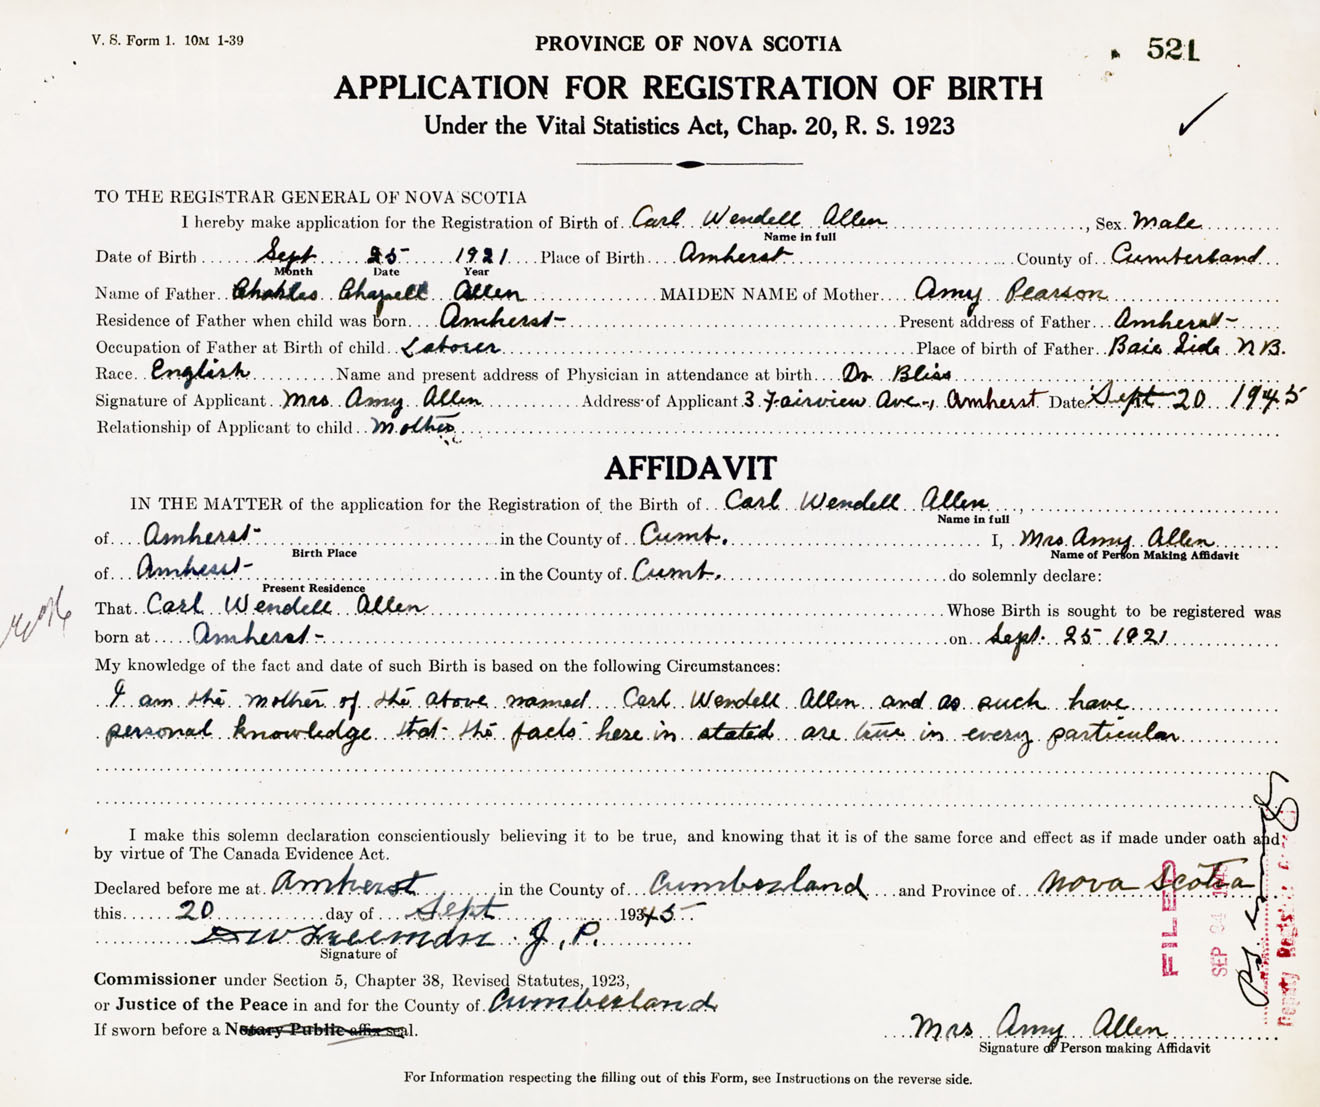 V. S. Form 1. 10M 1-39
PROVINCE OF NOVA SCOTIA
521
APPLICATION FOR REGISTRATION OF BIRTH
Under the Vital Statistics Act, Chap. 20, R. S. 1923
TO THE REGISTRAR GENERAL OF NOVA SCOTIA
I hereby make application for the Registration of Birth of Carl Wendell Allen, Sex Male
Name in full
Date of Birth Sept 25 1921 Place of Birth Amherst County of Cumberland
Month Date Year
Name of Father Charles Chapell Allen MAIDEN NAME of Mother Amy Pearson
Residence of Father when child was born Amherst Present address of Father Amherst
Occupation of Father at Birth of child Laborer Place of birth of Father Baie Side N.B.
Race English Name and present address of Physician in attendance at birth Dr Bliss
Signature of Applicant Mrs Amy Allen Address of Applicant 3 Fairview Ave., Amherst Date Sept 20 1945
Relationship of Applicant to child Mother
AFFIDAVIT
IN THE MATTER of the application for the Registration of the Birth of Carl Wendell Allen,
Name in full
of Amherst in the County of Cumb. I, Mrs Amy Allen
Birth Place Name of Person Making Affidavit
of Amherst in the County of Cumb. do solemnly declare:
Present Residence
That Carl Wendell Allen Whose Birth is sought to be registered was
born at Amherst on Sept. 25 1921
My knowledge of the fact and date of such Birth is based on the following Circumstances:
I am the mother of the above named Carl Wendell Allen and as such have
personal knowledge that the facts here in stated are true in every particular
I make this solemn declaration conscientiously believing it to be true, and knowing that it is of the same force and effect as if made under oath and
by virtue of The Canada Evidence Act.
Declared before me at Amherst in the County of Cumberland and Province of Nova Scotia
this 20 day of Sept 19345
Freeman J.P.
Signature of
Commissioner under Section 5, Chapter 38, Revised Statutes, 1923,
or Justice of the Peace in and for the County of Cumberland
If sworn before a Notary Public affix seal.
Mrs Amy Allen
Signature of Person making Affidavit
For Information respecting the filling out of this Form, see Instructions on the reverse side.
FILED
SEP
Deputy